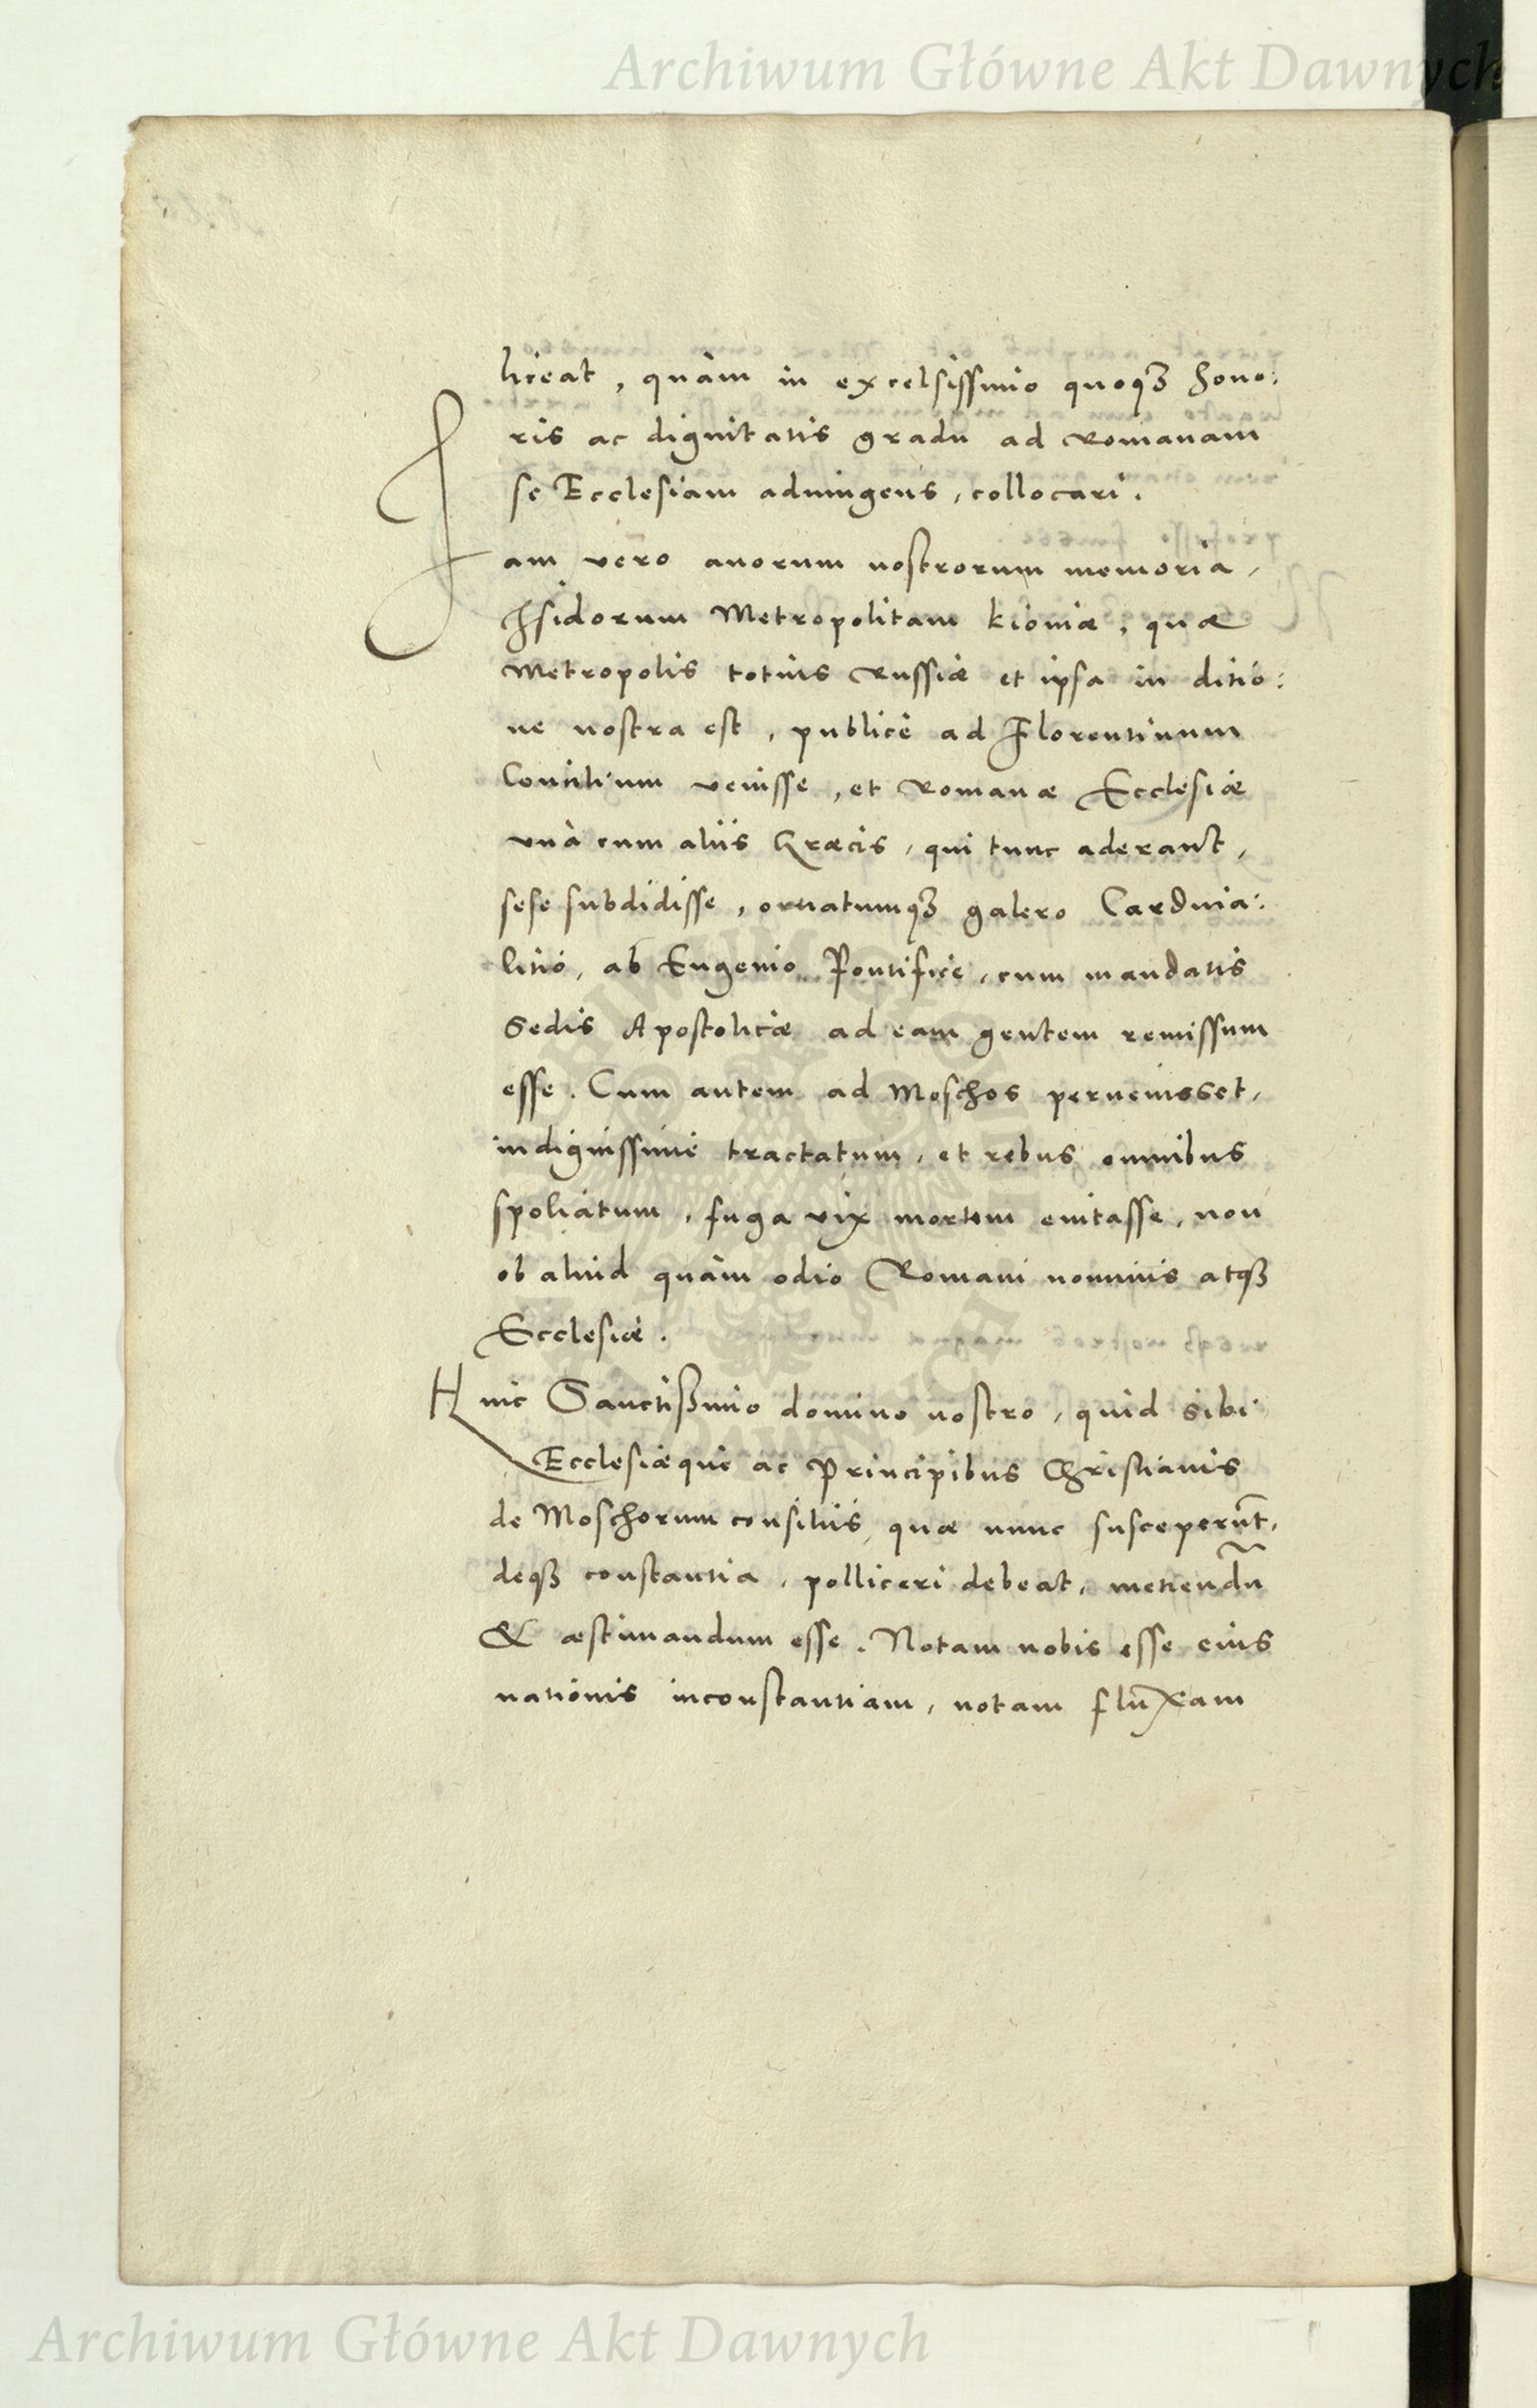 Archiwum Główne Akt Dawnych
liceat, quàm in excelsissimo quoqꝫ hono:
ris ac dignitatis gradu ad Romanam
se Ecclesiam adiungens, collocari.
Jam vero auorum nostrorum memoria,
Isidorum Metropolitam Kiouiæ, quæ
Metropolis totius Russiæ et ipsa in ditio:
ne nostra est, publicè ad Florentinum
Concilium venisse, et Romanæ Ecclesiæ
vnà cum aliis Græcis, qui tunc aderant,
sese subdidisse, ornatumqꝫ galero Cardina:
litio, ab Eugenio Pontifice, cum mandatis
Sedis Apostolicæ ad eam gentem remissum
esse. Cum autem ad Moschos peruenisset,
indignissimè tractatum, et rebus omnibus
spoliatum, fuga vix mortem euitasse, non
ob aliud quàm odio Romani nominis atqꝫ
Ecclesiæ.
Hinc Sanctißimo domino nostro, quid sibi
Ecclesiæque ac Principibus Christianis
de Moschorum consiliis, quæ nunc susceperūt,
deqꝫ constantia, polliceri debeat, metiendū
& æstimandum esse. Notam nobis esse eius
nationis inconstantiam, notam fluxam
Archiwum Główne Akt Dawnych